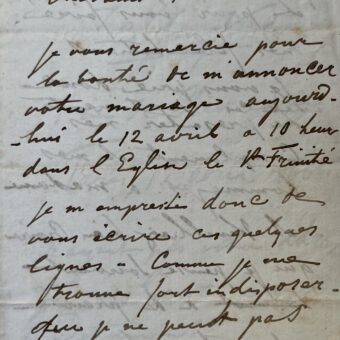 je vous remercie pour
la bonté de m'annoncer
votre mariage aujourd-
-hui le 12 avril a 10 heur
dans l'Eglise le Ste Trinité
je m'empreste donc de
vous écrire ces quelques
lignes - Comme je me
trouve fort indisposer-
que je ne peut pas